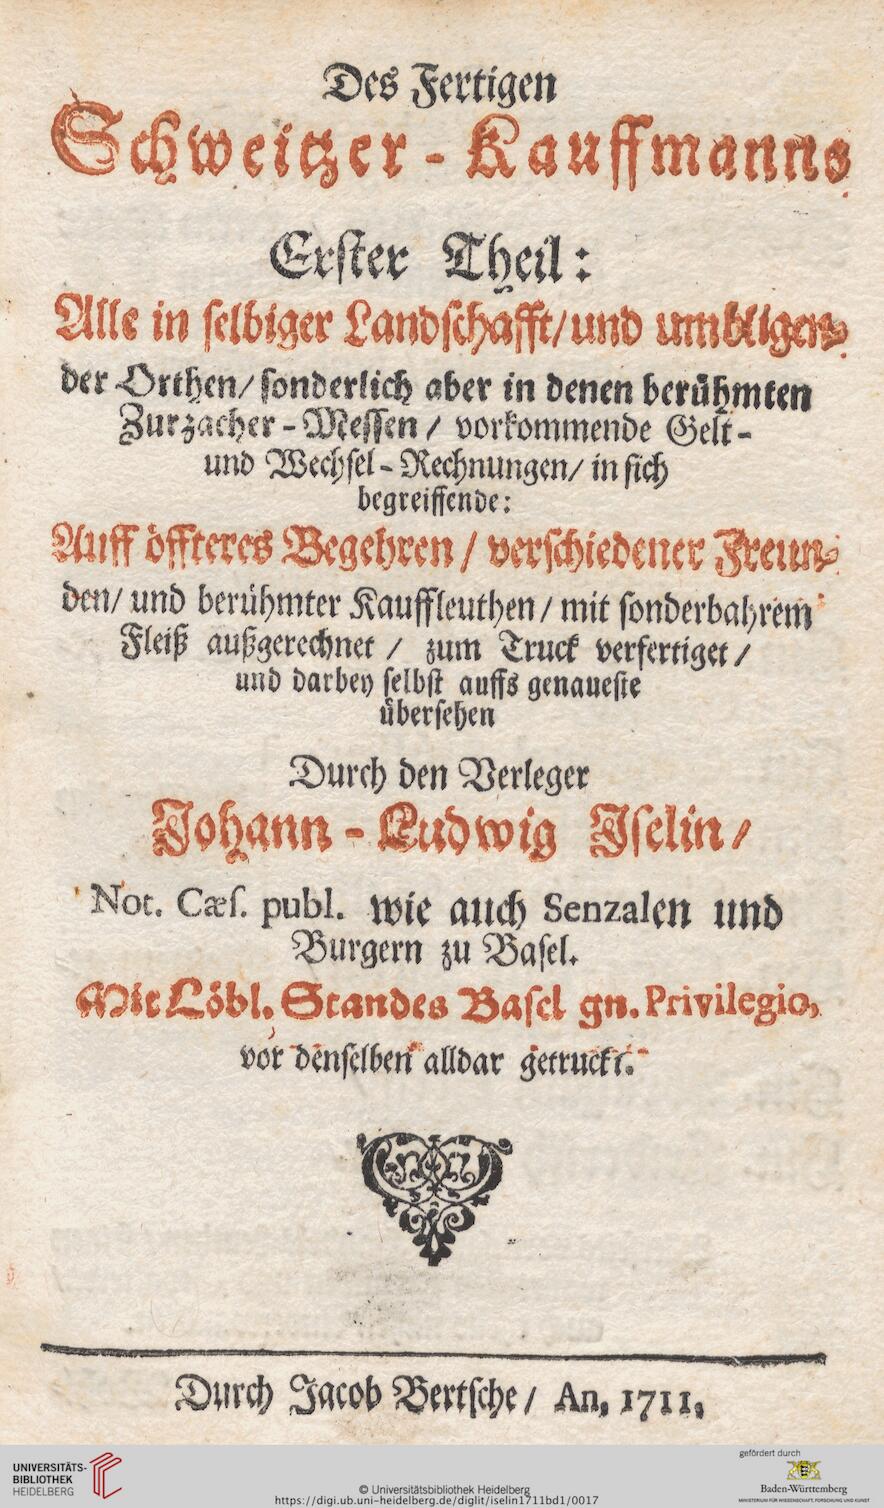 Des Fertigen
Schweitzer-Kauffmanns
Erster Theil:
Alle in selbiger Landschafft/und umbligen-
der Orthen/sonderlich aber in denen berühmten
Zurzacher-Messen/vorkommende Gelt-
und Wechsel-Rechnungen/in sich
begreiffende:
Auff öffteres Begehren/verschiedener Freun-
den/und berühmter Kauffleuthen/mit sonderbahrem
Fleiß außgerechnet/zum Truck verfertiget/
und darbey selbst auffs genaueste
übersehen
Durch den Verleger
Johann-Ludwig Iselin/
Not. Cæſ. publ. wie auch Senzalen und
Burgern zu Basel.
Mit Löbl. Standes Basel gn. Privilegio,
vor denselben alldar getruckt.
Durch Jacob Bertsche/An. 1711.
UNIVERSITÄTS-
BIBLIOTHEK
HEIDELBERG
© Universitätsbibliothek Heidelberg
https://digi.ub.uni-heidelberg.de/diglit/iselin1711bd1/0017
gefördert durch
Baden-Württemberg
MINISTERIUM FÜR WISSENSCHAFT, FORSCHUNG UND KUNST